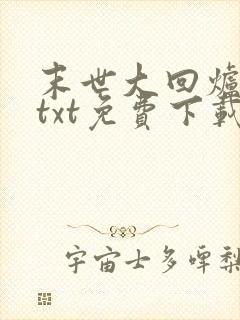 末世大回爐
txt免費下載
宇宙士多啤梨